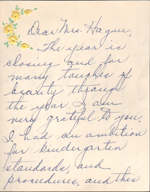 Dear Mrs. Hague,
The year is
closing and for
many touches of
beauty through
the year I am
very grateful to you.
I had an ambition
for kindergarten
standards, and
procedures, and this